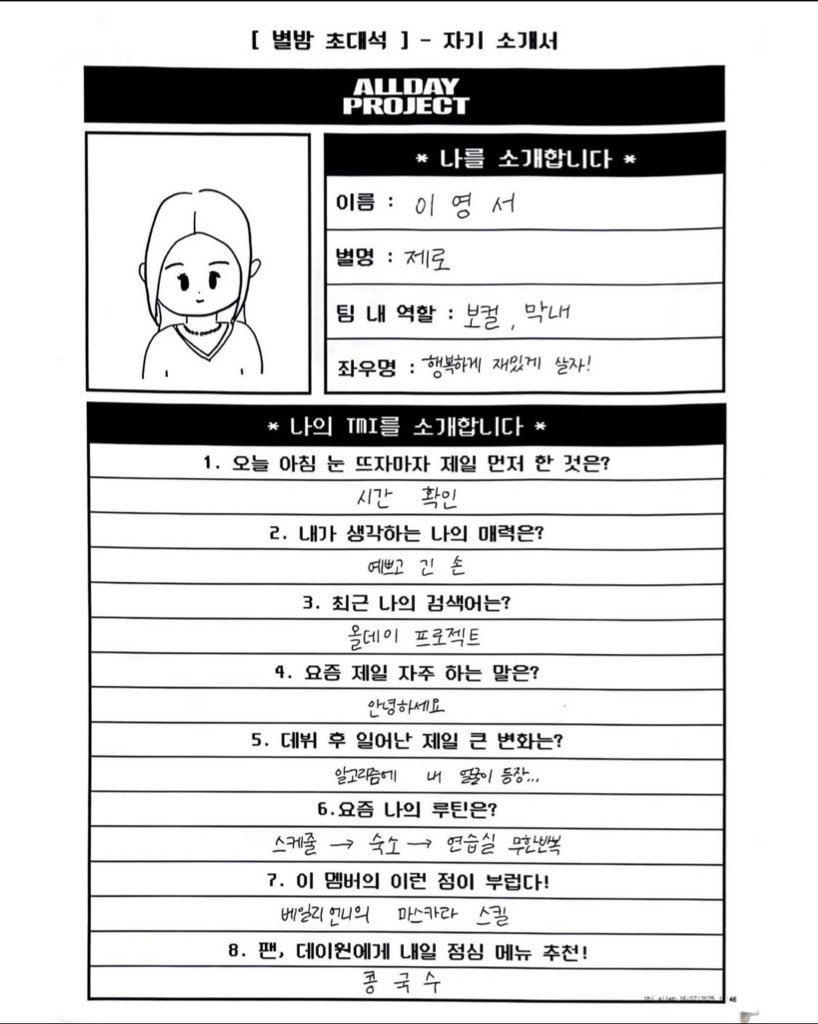 [ 별밤 초대석 ] - 자기 소개서
ALLDAY
PROJECT
* 나를 소개합니다 *
이름 : 이영서
별명 : 제로
팀 내 역할 : 보컬, 막내
좌우명 : 행복하게 재밌게 살자!
* 나의 TMI를 소개합니다 *
1. 오늘 아침 눈 뜨자마자 제일 먼저 한 것은?
시간 확인
2. 내가 생각하는 나의 매력은?
예쁘고 긴 손
3. 최근 나의 검색어는?
올데이 프로젝트
4. 요즘 제일 자주 하는 말은?
안녕하세요
5. 데뷔 후 일어난 제일 큰 변화는?
알고리즘에 내 얼굴이 등장...
6.요즘 나의 루틴은?
스케줄 → 숙소 → 연습실 무한반복
7. 이 멤버의 이런 점이 부럽다!
베일리언니의 마스카라 스킬
8. 팬, 데이원에게 내일 점심 메뉴 추천!
콩국수